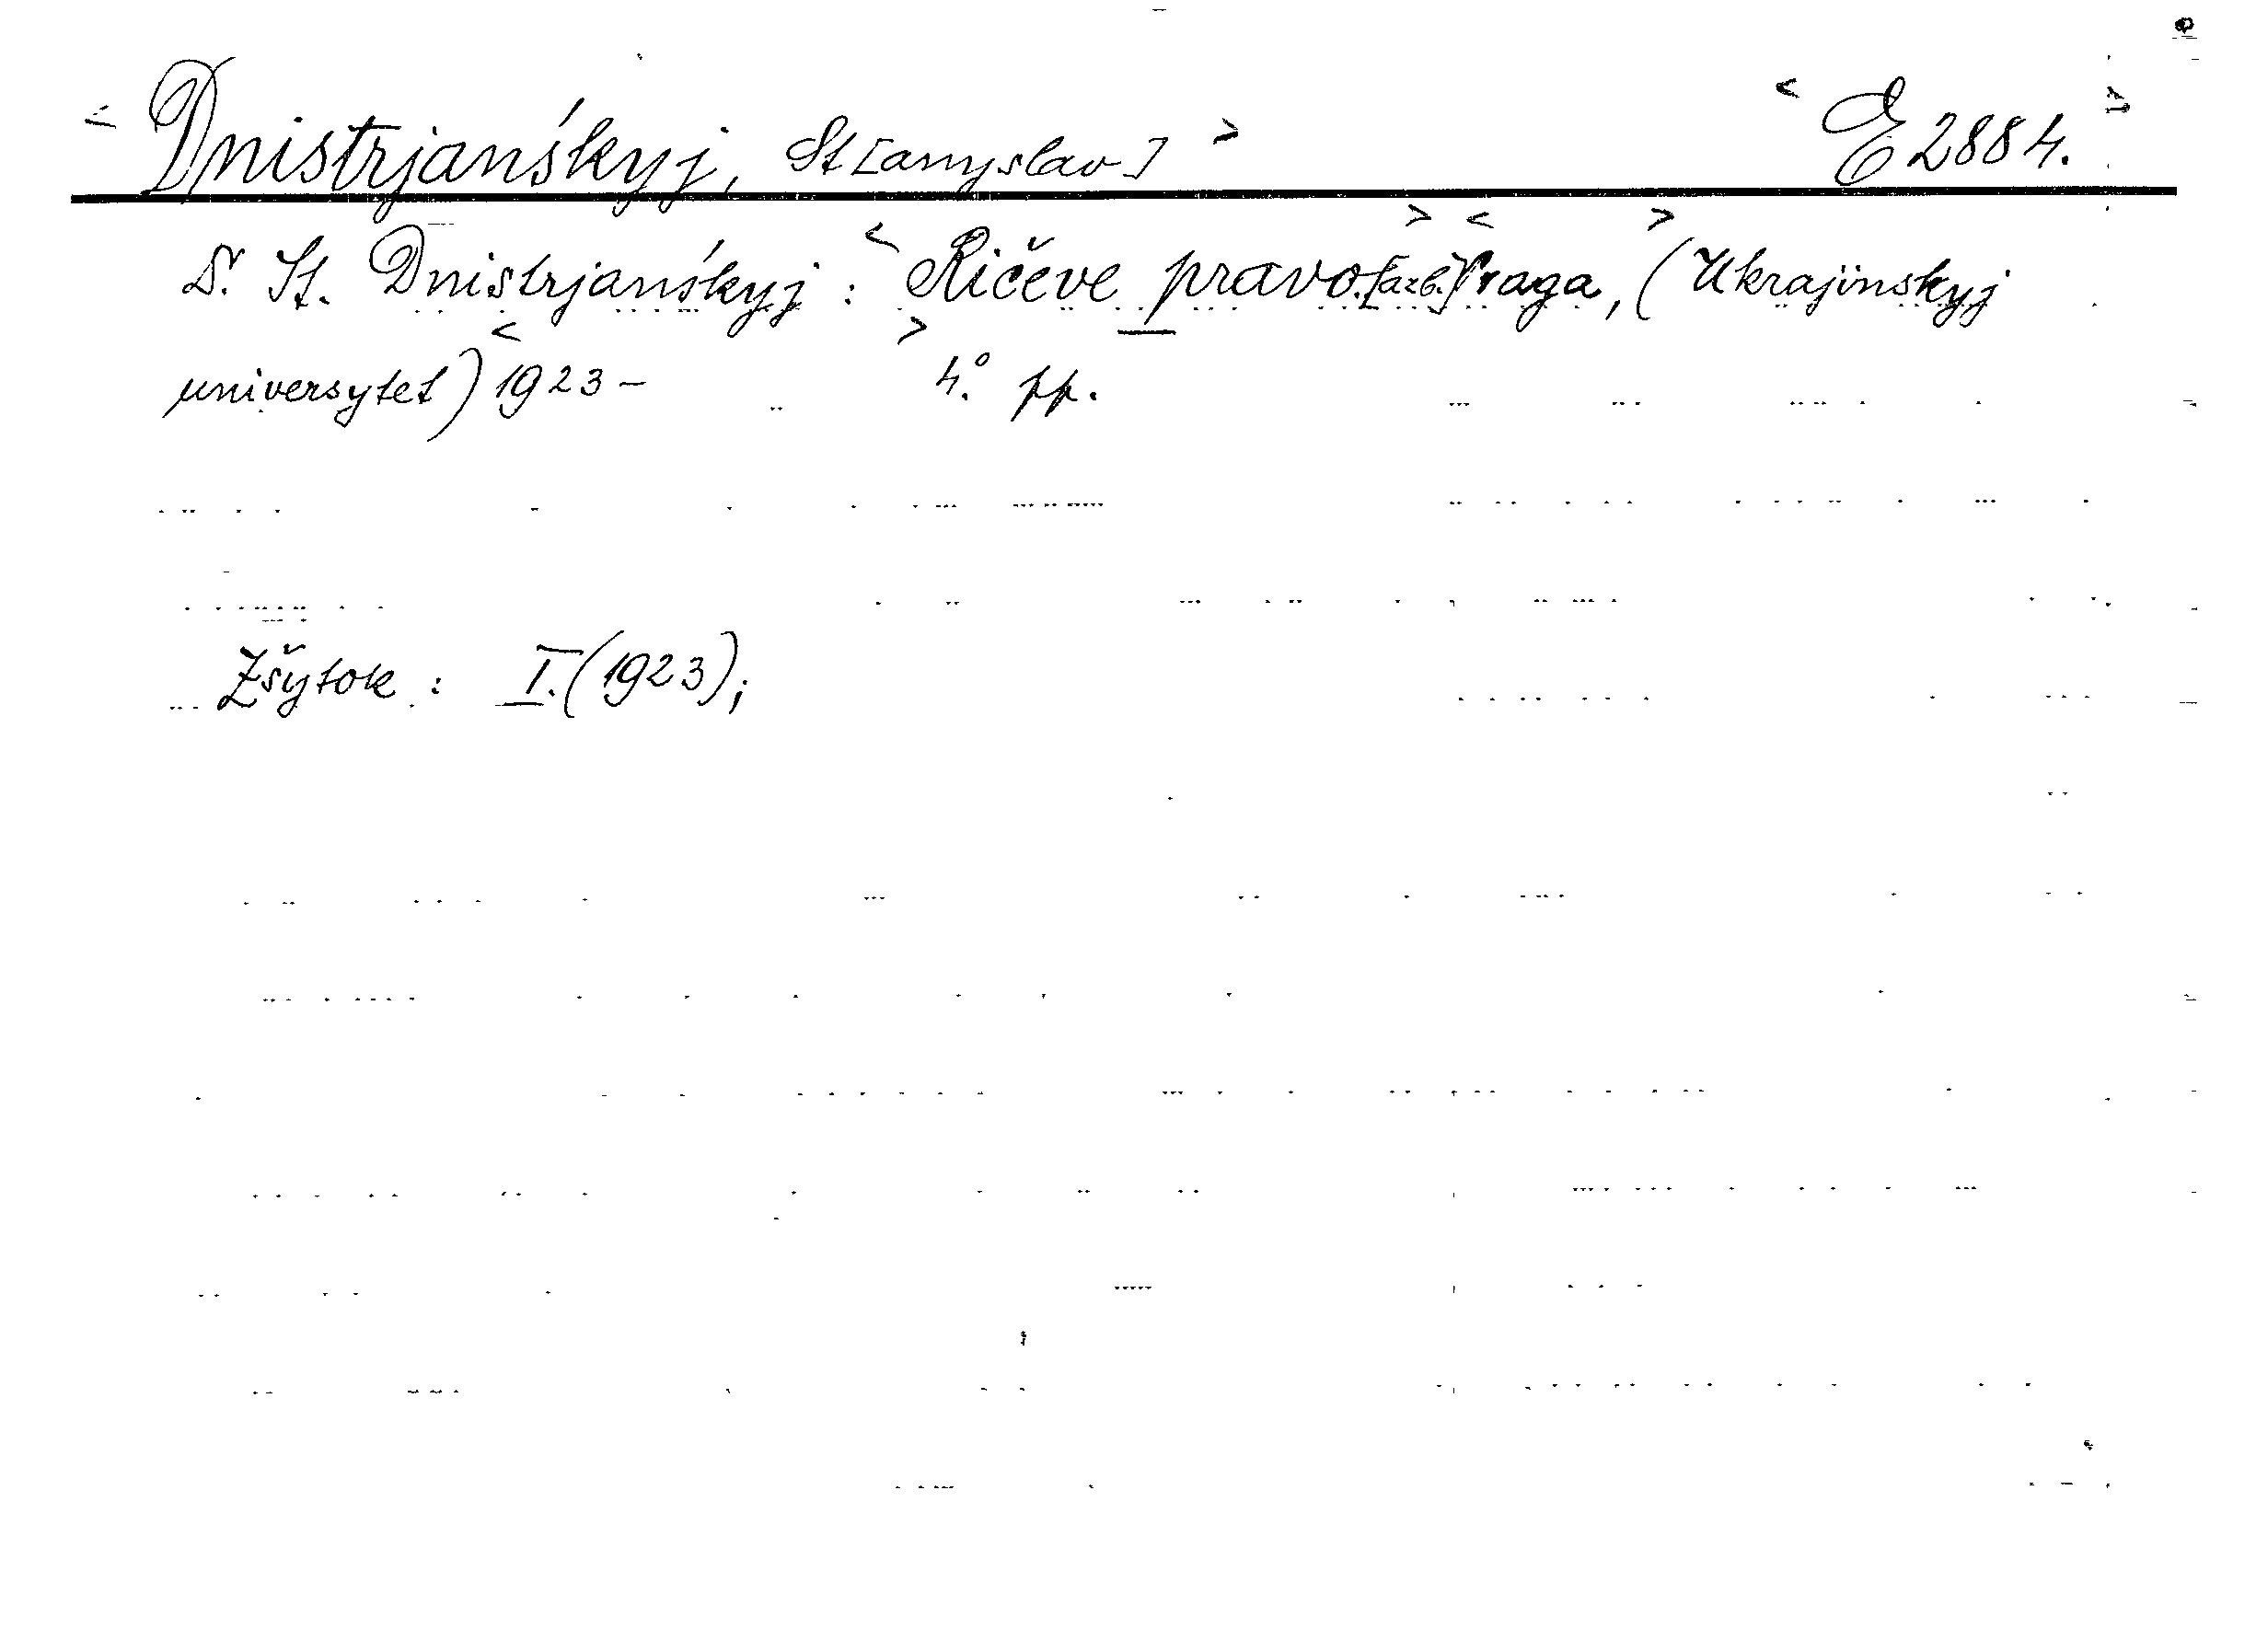 < Dnistrjanśkyj, St[anyslav] > < E 2884. >
D. St. Dnistrjanśkyj : < Ričeve pravo. [azb.] > < Praga, > (Ukrajinskyj
universytet) < 1923 – > 4.° pp.
Zšytok : I. (1923);